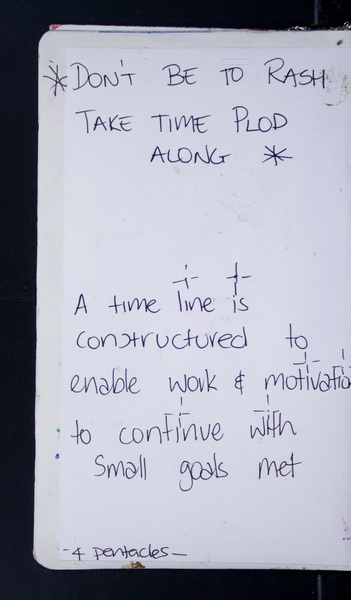 *DON'T BE TO RASH
TAKE TIME PLOD
ALONG *
A time line is
constructured to
enable work & motivatio
to continue with
Small goals met
- 4 pentacles -